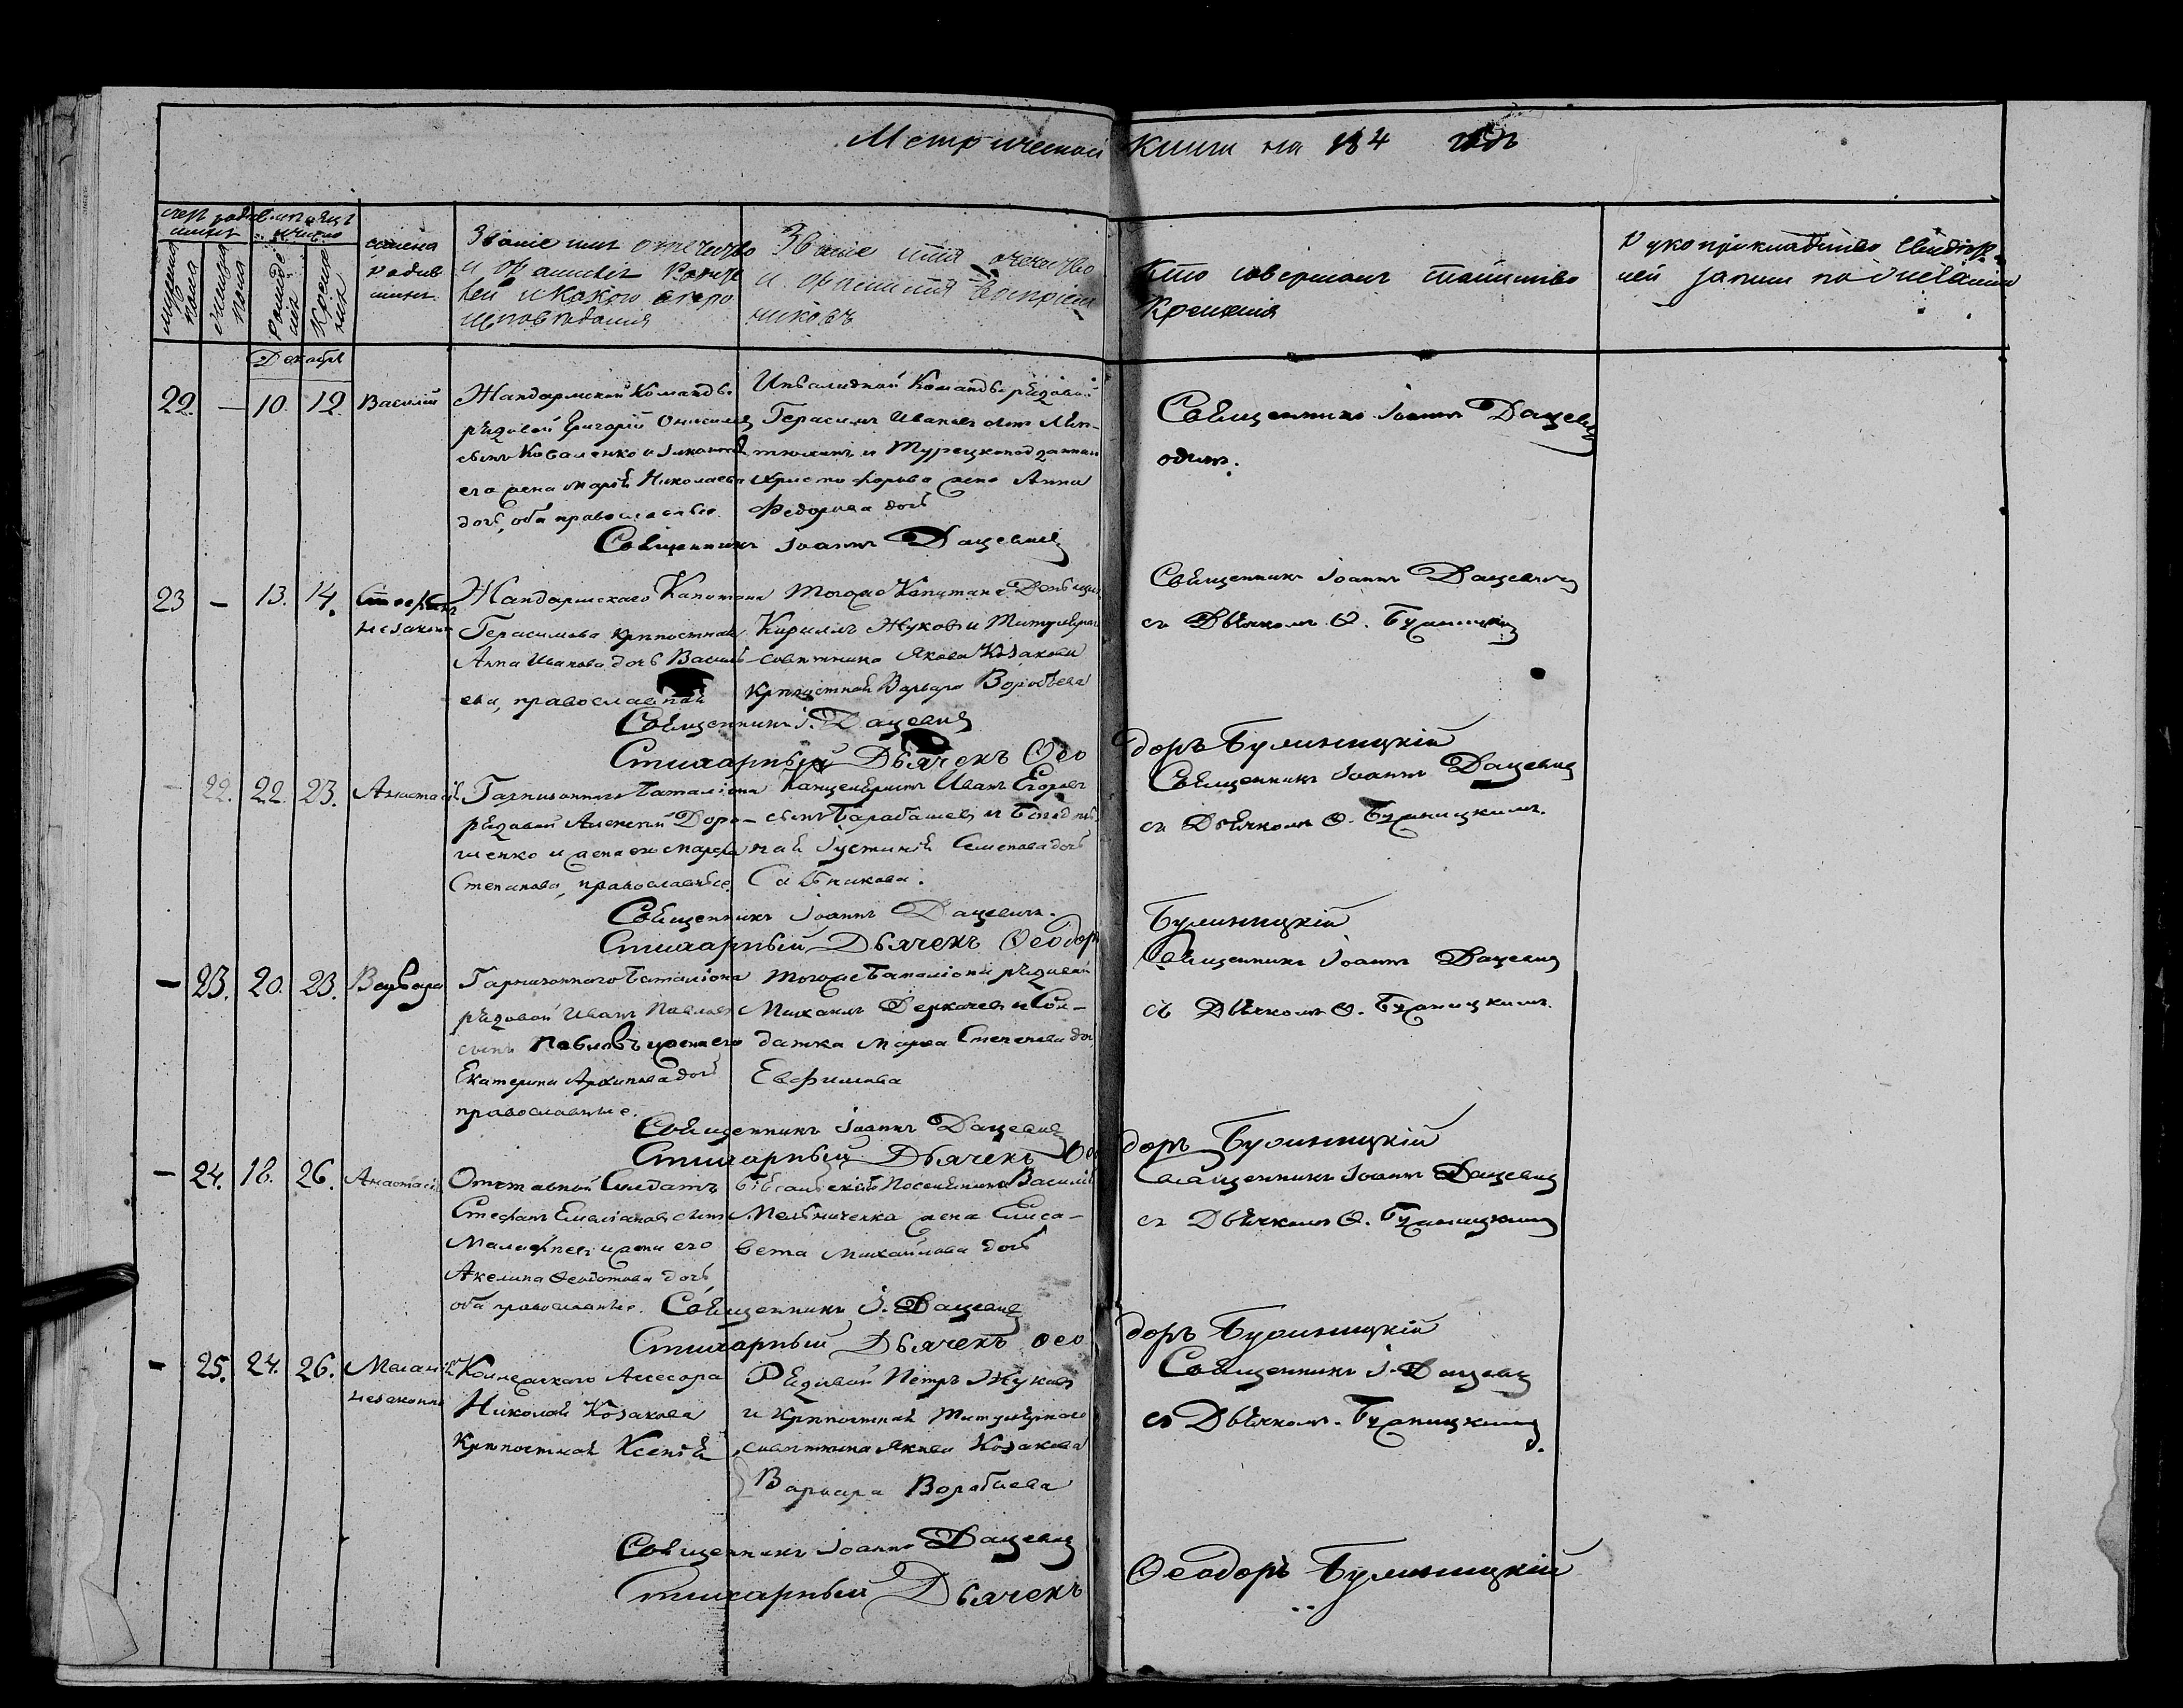 Метрической Книги на 184 годъ
Счетъ родившихся
Мѣсяцъ и число
мужеска пола
женска пола
рожденія
крещенія
имена родившихся
Званіе имя отечество и фамилія родителей и какого вѣроисповѣданія
Званіе имя отечество и фамилія воспріемниковъ
Кто совершалъ таинство крещенія
Рукоприкладство свидѣтелей записи по желанію
Декабрь
22. — 10. 12. Василій
Жандармской Команды
рядовой Григорій Онисимовъ
сынъ Коваленко и законная
его жена Марія Николаева
дочь, оба православные.
Инвалидной Команды рядовой
Герасимъ Ивановъ сынъ
и Турецкоподданнаго
жена Анна
Федорова дочь
Священникъ Іоаннъ Дацевичъ
одинъ.
Священникъ Іоаннъ Дацевичъ
23 — 13. 14. Стефанъ
незаконно
Жандармскаго Капитана
Герасимова крѣпостная
Анна Иванова дочь Василь-
ева, православная
Тогоже Капитана Деньщикъ
Кирилъ Жуковъ и Титулярнаго
совѣтника Якова Козакова
крѣпостная Варвара Воробьева
Священникъ Іоаннъ Дацевичъ
съ Дьячкомъ Ѳ. Булиницкимъ
Священникъ І. Дацевичъ
Стихарный Дьячекъ Ѳеодоръ Булиницкій
— 22. 22. 23. Анастасія
Гарнизоннаго Баталіона
рядовой Алексей Доро-
шенко и жена его Марфа
Степанова, православные.
Канцеляристъ Иванъ Егоровъ
сынъ Барабашевъ и
Іустинія Семенова дочь
Сальникова.
Священникъ Іоаннъ Дацевичъ
съ Дьячкомъ Ѳ. Булиницкимъ.
Священникъ Іоаннъ Дацевичъ.
Стихарный Дьячекъ Ѳеодоръ Булиницкій
— 23. 20. 23. Варвара
Гарнизоннаго Баталіона
рядовой Иванъ Павловъ
сынъ Павловъ и жена его
Екатерина Архипова дочь
православные.
Тогоже Баталіона рядовой
Михаилъ Деркачевъ и Сол-
датка Марфа Степанова дочь
Евфимова
Священникъ Іоаннъ Дацевичъ
съ Дьячкомъ Ѳ. Булиницкимъ.
Священникъ Іоаннъ Дацевичъ
Стихарный Дьячекъ Ѳеодоръ Булиницкій
— 24. 18. 26. Анастасія
Отставной Солдатъ
Стефанъ Емельяновъ сынъ
Малафѣевъ и жена его
Акелина Ѳеодотова дочь
оба православные.
Поселянина Василія
Мельниченка жена Елиса-
вета Михайлова дочь
Священникъ Іоаннъ Дацевичъ
съ Дьячкомъ Ѳ. Булиницкимъ
Священникъ І. Дацевичъ
Стихарный Дьячекъ Ѳеодоръ Булиницкій
— 25. 24. 26. Меланія
незаконно
Коллежскаго Асесора
Николая Козакова
Крѣпостная Ксенія
Рядовой Петръ Жуковъ
и Крѣпостная Титулярнаго
совѣтника Якова Козакова
Варвара Воробиева
Священникъ І. Дацевичъ
съ Дьячкомъ. Булиницкимъ.
Священникъ Іоаннъ Дацевичъ
Стихарный Дьячекъ Ѳеодоръ Булиницкій